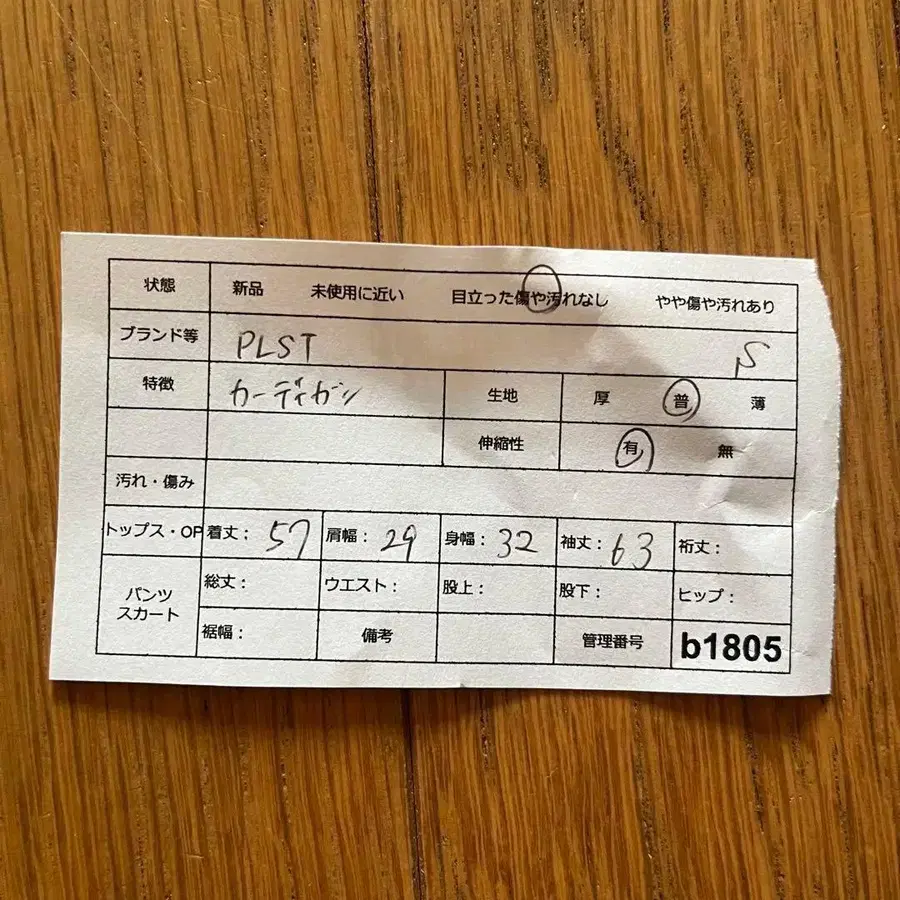 状態 新品 未使用に近い 目立った傷や汚れなし やや傷や汚れあり
ブランド等 PLST S
特徴 カーディガン 生地 厚 普 薄
伸縮性 有 無
汚れ・傷み
トップス・OP 着丈： 57 肩幅： 29 身幅： 32 袖丈： 63 裄丈：
パンツ スカート 総丈： ウエスト： 股上： 股下： ヒップ：
裾幅： 備考 管理番号 b1805